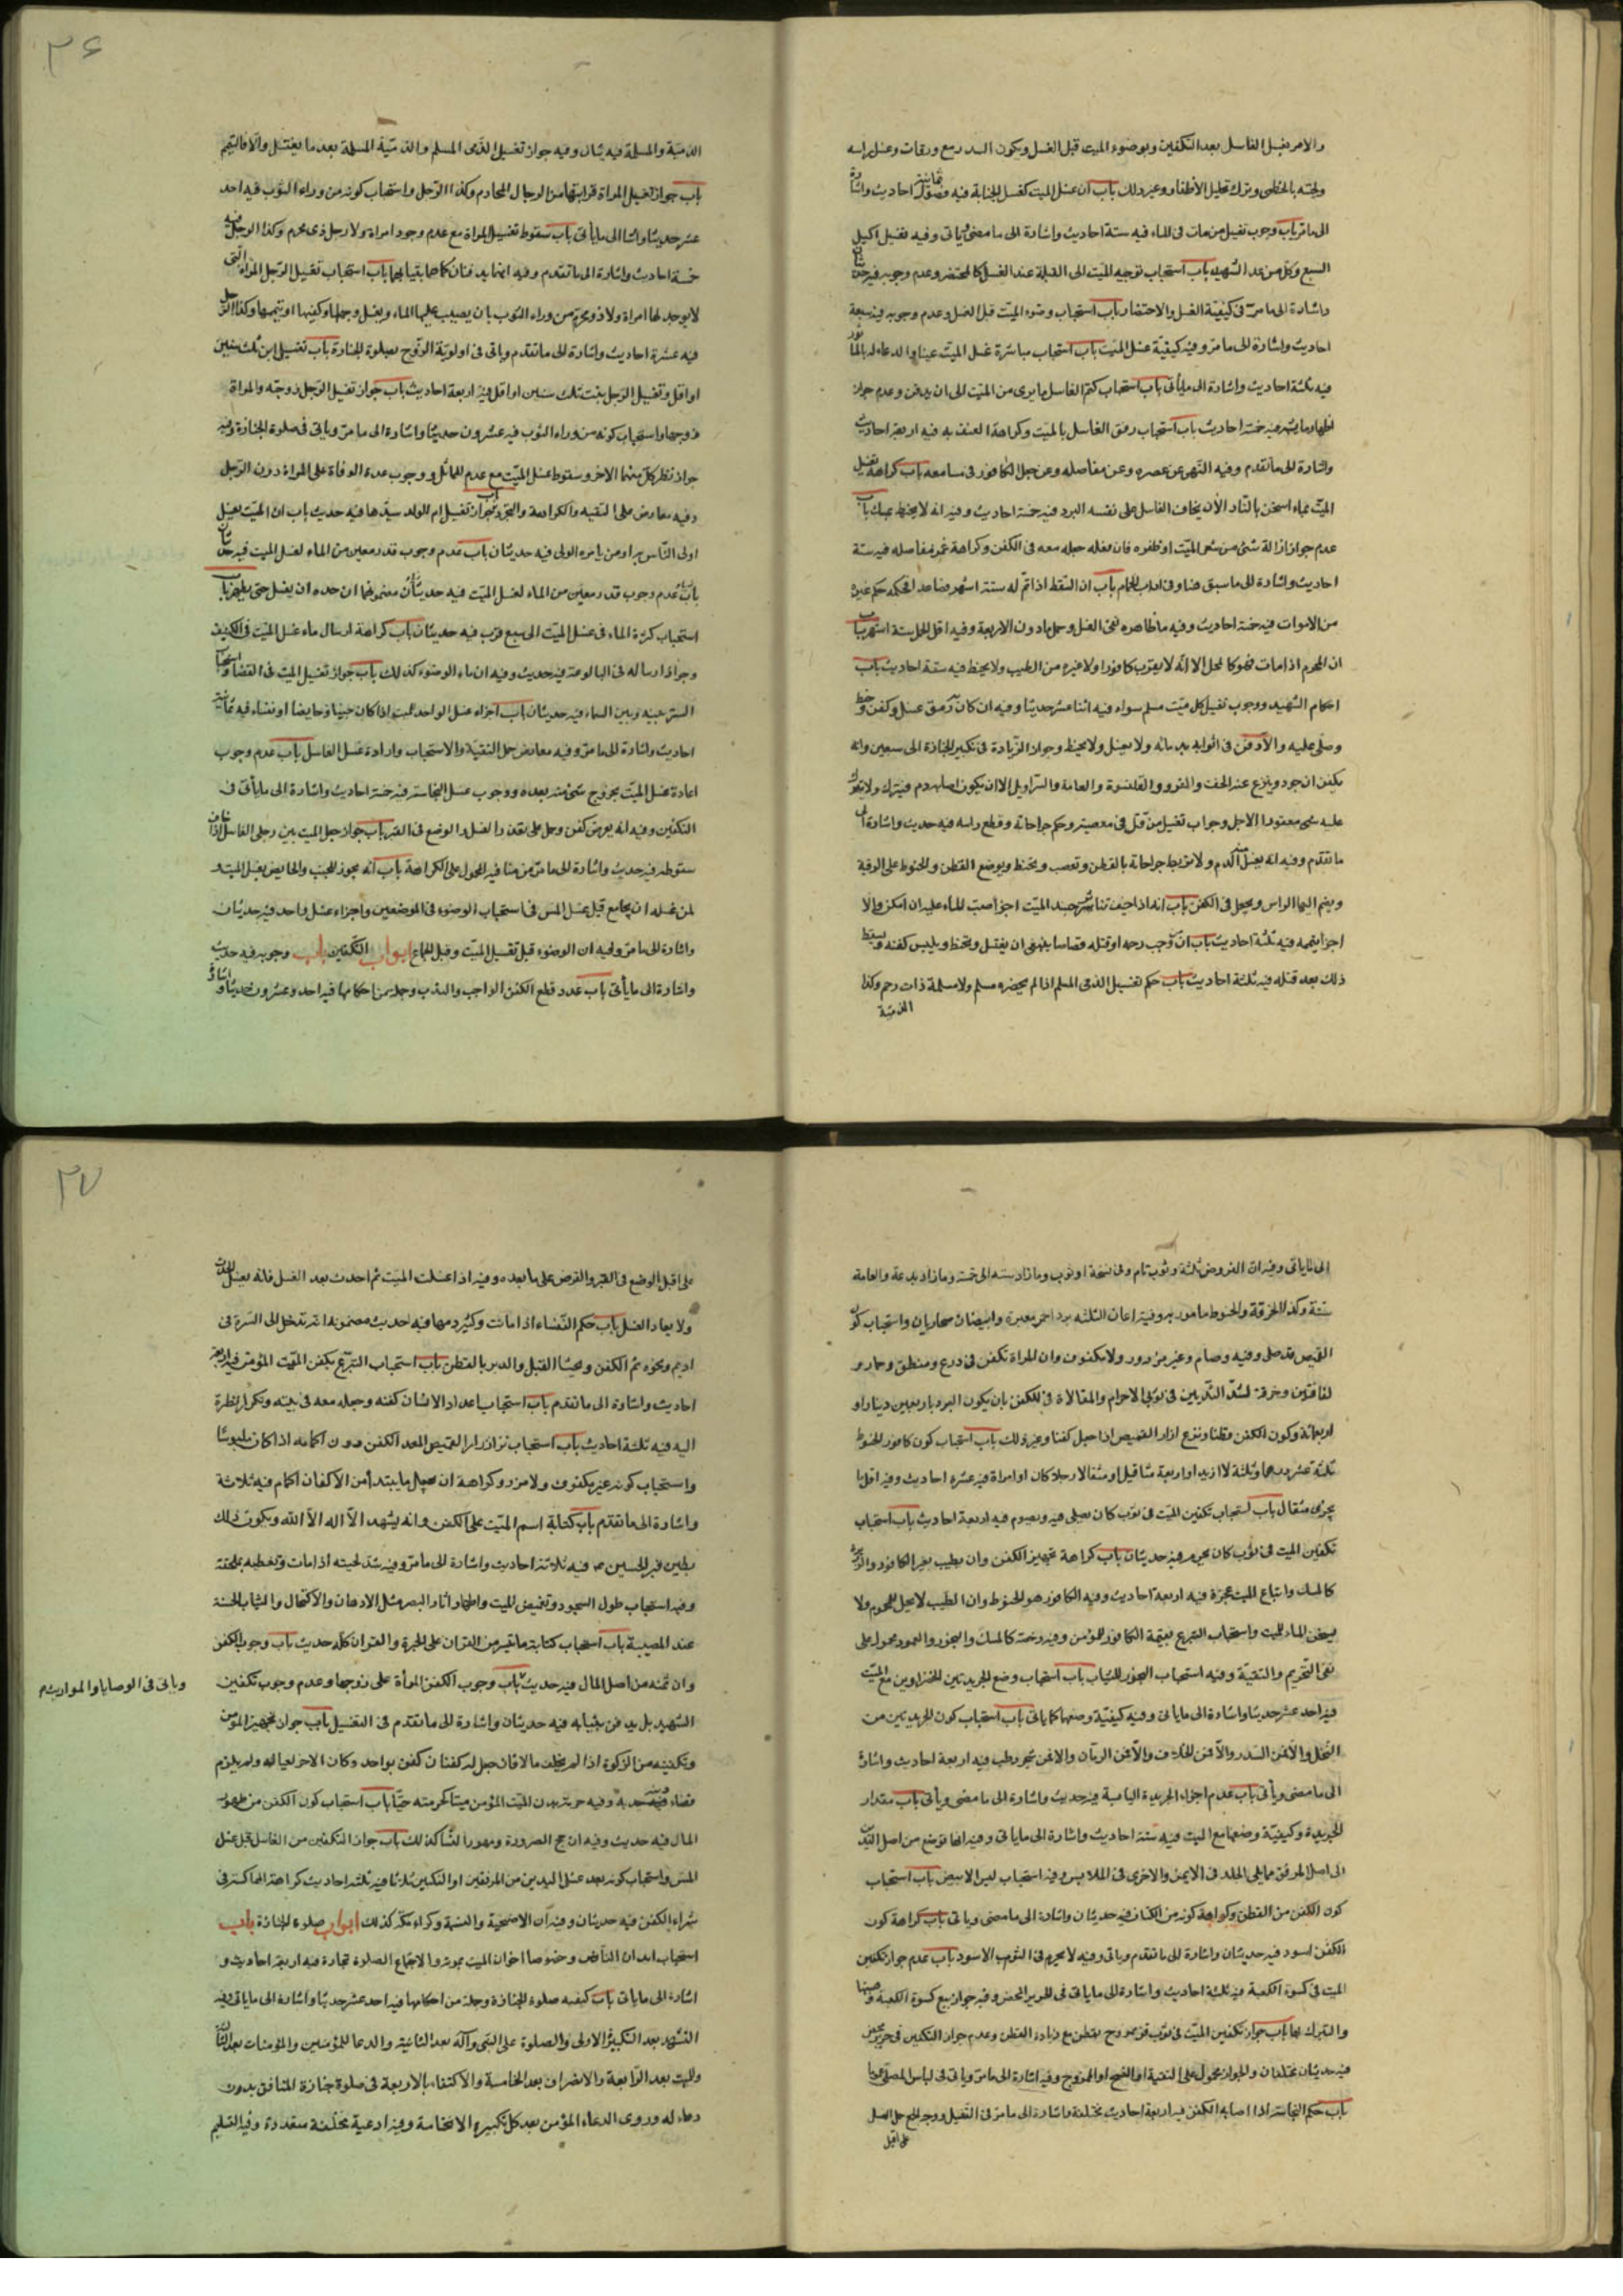 والامر بغسل الغاسل بعد التكفين وبوضوء الميت قبل الغسل ويكون السدر سبع ورقات وغسل راسه
ولحيته بالخطمى وترك تخليل الأظفار وغير ذلك باب ان غسل الميت كغسل الجنابة فيه احاديث واشارة
الى ما مر باب وجوب تغسيل من مات فى الماء فيه ستة احاديث واشارة الى ما مضى ويأتى وفيه تغسيل اكيل
السبع وكل من عدا الشهيد باب استحباب توجيه الميت الى القبلة عند الغسل كالمحتضر وعدم وجوبه فيه
واشارة الى ما مر فى كيفية الغسل والاحتضار باب استحباب وضوء الميت قبل الغسل وعدم وجوبه فيه سبعة
احاديث واشارة الى ما مر وفيه كيفية غسل الميت باب استحباب مباشرة غسل الميت عينا والدعاء له بالماثور
فيه ثلثة احاديث واشارة الى ما يأتى باب استحباب كتم الغاسل ما يرى من الميت الى ان يدفن وعدم جواز
اظهار ما يشينه فيه خمسة احاديث باب استحباب رفق الغاسل بالميت وكراهة العنف به فيه اربعة احاديث
واشارة الى ما تقدم وفيه النهى عن عصره وعن مفاصله وعن جعل الكافور فى مسامعه باب كراهة تغسيل
الميت بماء اسخن بالنار الا ان يخاف الغاسل على نفسه البرد فيه خمسة احاديث وفيه انه لا يحنط بمسك باب
عدم جواز ازالة شئ من شعر الميت او ظفره فان فعله جعله معه فى الكفن وكراهة غمز مفاصله فيه ستة
احاديث واشارة الى ما سبق هنا وفى اداب الحمام باب ان السقط اذا تم له ستة اشهر فصاعدا فحكمه حكم غيره
من الاموات فيه خمسة احاديث وفيه ما ظاهره نفى الغسل وحمل ما دون الاربعة وفيه اقل الحمل ستة اشهر باب
ان المحرم اذا مات فهو كالمحل الا انه لا يقرب كافورا ولا غيره من الطيب ولا يحنط فيه ستة احاديث باب
احكام الشهيد ووجوب تغسيل كل ميت مسلم سواه فيه اثنا عشر حديثا وفيه ان كان به رمق غسل وكفن وحنط
وصلى عليه والا دفن فى اثوابه بدمائه ولا يغسل ولا يحنط وجواز الزيادة فى تكبير الجنازة الى سبعين وانه
يكفن ان جرد وينزع عنه الخف والفرو والقلنسوة والعمامة والسراويل الا ان يكون اصابه دم فيترك ولا يترك
عليه شئ معقود الا حل وجواب تغسيل من قتل فى معصية وحكم جراحاته وقطع راسه فيه حديث واشارة الى
ما تقدم وفيه انه يغسل الدم ولا جراحاته بالقطن وتعصب ويحنط ويوضع القطن والحنوط على الرقبة
ويضم اليها الراس ويجعل فى الكفن باب انه اذا خيف تناثر جسد الميت اجزأ صب الماء عليه ان امكن والا
اجزأ تيممه فيه ثلثة احاديث باب ان من وجب رجمه او قتله قصاصا ينبغى ان يغتسل ويتحنط ويلبس كفنه ويسقط
ذلك بعد قتله فيه ثلثة احاديث باب حكم تغسيل الذمى المسلم اذا لم يحضره مسلم ولا مسلمة ذات رحم وكذا
الذمية
٣٦
الذمية والمسلمة فيه وفيه جواز تغسيل الذمى المسلم والذمية المسلمة بعد ما يغتسل والا فالتيمم
باب جواز تغسيل المراة قرابتها من الرجال المحارم وكذا الرجل واستحباب كونه من وراء الثوب فيه احد
عشر حديثا واشارة الى ما يأتى باب سقوط تغسيل المراة مع عدم وجود امراة ولا رجل ذى محرم وكذا الرجل فيه
خمسة احاديث واشارة الى ما تقدم وفيه انهما يدفنان كما هما بثيابهما باب استحباب تغسيل الرجل المراة التى
لا يوجد لها امراة ولا ذو محرم من وراء الثوب بان يصب عليها الماء ويغسل وجهها وكفيها او تيممها وكذا الرجل
فيه عشرة احاديث واشارة الى ما تقدم وياتى فى اولوية الزوج بصلوة الجنازة باب تغسيل ابن ثلث سنين
او اقل وتغسيل الرجل بنت ثلث سنين او اقل فيه اربعة احاديث باب جواز تغسيل الرجل زوجته والمراة
زوجها واستحباب كونه من وراء الثوب فيه عشرون حديثا واشارة الى ما مر وياتى فى صلوة الجنازة وفيه
جواز نظر كل منهما الاخر وسقوط غسل الميت مع عدم المماثل ووجوب عدة الوفاة على المراة دون الرجل
وفيه معارض حمل على التقية والكراهة والتجرد باب جواز تغسيل ام الولد سيدها فيه حديث باب ان الميت يغسله
اولى الناس به او من يامره الولى فيه حديثان باب عدم وجوب قدر معين من الماء لغسل الميت فيه
باب عدم وجوب قدر معين من الماء لغسل الميت فيه حديثان مضمونهما ان حده ان يغسل حتى يطهر باب
استحباب كثرة الماء فى غسل الميت الى سبع قرب فيه حديثان باب كراهة ارسال ماء غسل الميت فى الكنيف
وجواز ارساله فى البالوعة فيه حديث وفيه ان ماء الوضوء كذلك باب جواز تغسيل الميت فى الفضاء واستحباب
الستر بينه وبين السماء فيه حديثان باب اجزاء غسل الواحد للميت اذا كان جنبا او حايضا او نفساء فيه ثمانية
احاديث واشارة الى ما مر وفيه معارض حمل التقية والاستحباب وارادة غسل الغاسل باب عدم وجوب
اعادة غسل الميت بخروج شئ منه بعده ووجوب غسل النجاسة فيه خمسة احاديث واشارة الى ما يأتى فى
التكفين وفيه انه يقرض كفن وحمل على بعد الغسل والوضع فى القبر باب جواز جعل الميت بين رجلى الغاسل اذا خاف
سقوطه فيه حديث واشارة الى ما مر من منافيه المحمول على الكراهة باب انه يجوز للجنب والحايض تغسيل الميت و
لمن غسله ان يجامع قبل غسل المس فى استحباب الوضوء فى الموضعين واجزاء غسل واحد فيه حديثان
واشارة الى ما مر وفيه ان الوضوء قبل تغسيل الميت وقبل الجماع ابواب التكفين باب وجوبه فيه حديث
واشارة الى ما يأتى باب عدد قطع الكفن الواجب والندب وجملة من احكامها فيه احد وعشرون حديثا واشارة
الى ما ياتى وفيه ان الفروض ثلثة وثوب تام وفى نسخة او ثوب وما زاد سنة الى خمسة وما زاد بدعة والعمامة
سنة وكذا الخرقة والحنوط مامور به وفيه اعان الثلثة برد احمر معبرة وابيضان صحاريان واستحباب كون
القميص قد صلى وفيه وصام وغير مزرور ولا مكفوف وان المراة تكفن فى درع ومنطق وخمار و
لفافتين وخرقة لشد الثديين فى ثوبى الاحرام والمغالاة فى الكفن بان يكون البرد باربعين دينارا و
اربعمائة وكون الكفن قطنا ونزع ازرار القميص اذا جعل كفنا وغير ذلك باب استحباب كون كافور الحنوط
ثلثة عشر درهما وثلثة لا ازيد او اربعة مثاقيل او مثقالا رجلا كان او امراة فيه عشرة احاديث وفيه اقل ما
يجزى مثقال باب استحباب تكفين الميت فى ثوب كان يصلى فيه ويصوم فيه اربعة احاديث باب استحباب
تكفين الميت فى ثوب كان يحرم فيه حديثان باب كراهة تجمير الكفن وان يطيب بغير الكافور والذريرة
كالمسك واتباع الميت بمجمرة فيه اربعة احاديث وفيه الكافور هو الحنوط وان الطيب لا يحل للمحرم ولا
يسخن الماء للميت واستحباب التبرع بقيمة الكافور للمؤمن وفيه رخصة كالمسك والبخور والعود محمول على
نفى التحريم والتقية وفيه استحباب البخور للثياب باب استحباب وضع الجريدتين الخضراوين مع الميت
فيه احد عشر حديثا واشارة الى ما ياتى وفيه كيفية وضعها كما ياتى باب استحباب كون الجريدتين من
النخل والا فمن السدر والا فمن الخلاف والا فمن الرمان والا فمن شجر رطب فيه اربعة احاديث واشارة
الى ما مضى ويأتى باب عدم اجزاء الجريدة اليابسة فيه حديث واشارة الى ما مضى ويأتى باب مقدار
الجريدة وكيفية وضعها مع الميت فيه ستة احاديث واشارة الى ما ياتى وفيه انها توضع من اصل اليدين
الى اصل المرفق مما يلى الجلد فى الايمن والاخرى فى الملابس وفيه استحباب لبس الابيض باب استحباب
كون الكفن من القطن وكراهة كونه من الكتان فيه حديثان واشارة الى ما مضى وياتى باب كراهة كون
الكفن اسود فيه حديثان واشارة الى ما تقدم وياتى وفيه لا يحرم فى الثوب الاسود باب عدم جواز تكفين
الميت فى كسوة الكعبة فيه ثلثة احاديث واشارة الى ما ياتى فى الحرير المحض وفيه جواز بيع كسوة الكعبة وهبتها
والتبرك بها باب جواز تكفين الميت فى ثوب قز ممزوج بقطن مع زيادة القطن وعدم جواز التكفين فى حرير محض
فيه حديثان مختلفان والجواز محمول على التقية او الممزوج وفيه اشارة الى ما مر وياتى فى لباس المصلى
باب حكم النجاسة اذا اصابه الكفن فيه اربعة احاديث مختلفة واشارة الى ما مر فى التغسيل ووجه الجمع حمل الغسل
على قبل
٣٧
على قبل الوضع فى القبر والقرض على ما بعده وفيه اذا غسلت الميت ثم احدث بعد الغسل فانه يغسل الحدث
ولا يعاد الغسل باب حكم النفساء اذا ماتت وكثر دمها فيه حديث مضمونه انه تدخل الى السرة فى
اديم ونحوه ثم الكفن ويحشا القبل والدبر بالقطن باب استحباب التبرع بكفن الميت المؤمن فيه اربعة
احاديث واشارة الى ما تقدم باب استحباب اعداد الانسان كفنه وجعله معه فى بيته وتكرار نظره
اليه فيه ثلثة احاديث باب استحباب نزع ازرار القميص المعد للكفن دون اكمامه اذا كان ملبوسا
واستحباب كونه غير مكفوف ولا مزرر وكراهة ان يجعل ما يبتدأ من الاكفان اكمام فيه ثلاثة
واشارة الى ما تقدم باب كتابة اسم الميت على الكفن وانه يشهد الا اله الا الله ويكون ذلك
بطين قبر الحسين ع فيه ثلاثة احاديث واشارة الى ما مر وفيه شد لحيته اذا مات وتغطيه بملحفة
وفيه استحباب طول السجود وتغميض الميت واظهار اثار البصر مثل الادهان والاكتحال والثياب الحسنة
عند المصيبة باب استحباب كتابة ما تيسر من القران على الحبرة والقران كله حديث باب وجوب الكفن
وان ثمنه من اصل المال فيه حديث باب وجوب الكفن المرأة على زوجها وعدم وجوب تكفين
وياتى فى الوصايا والمواريث م
الشهيد بل يدفن بثيابه فيه حديثان واشارة الى ما تقدم فى التغسيل باب جواز تجهيز المؤمن
وتكفينه من الزكوة اذا لم يخلف مالا فان جعل له كفنان كفن بواحد وكان الاخر لعياله ولم يلزم
قضاء دينه به وفيه حرمة بدن الميت المؤمن ميتا كحرمته حيا باب استحباب كون الكفن من طهور
المال فيه حديث وفيه ان حج الصرورة ومهور النسا كذلك باب جواز التكفين من الغاسل قبل غسل
المس واستحباب كونه بعد غسل اليدين من المرفقين او المنكبين ثلاثا فيه ثلثة احاديث كراهة المماكسة فى
شراء الكفن فيه حديثان وفيه ان الاضحية والنسمة وكراء مكة كذلك ابواب صلوة الجنازة باب
استحباب ايذان الناس وخصوصا اخوان الميت بموته والاجتماع الصلوة تجارة فيه اربعة احاديث و
اشارة الى ما ياتى باب كيفية صلوة الجنازة وجملة من احكامها فيه احد عشر حديثا واشارة الى ما ياتى وفيه
التشهد بعد التكبيرة الاولى والصلوة على النبى وآله بعد الثانية والدعا للمؤمنين والمؤمنات بعد الثالثة
وللميت بعد الرابعة والانصراف بعد الخامسة والاكتفاء بالاربعة فى صلوة جنازة المنافق بدون
دعاء له وروى الدعاء المؤمن بعد كل تكبيرة الا الخامسة وفيه ادعية مختلفة متعددة وفيه التسليم